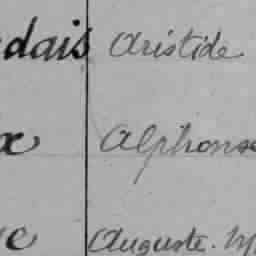 dais Aristide
x Alphonse
e Auguste. M